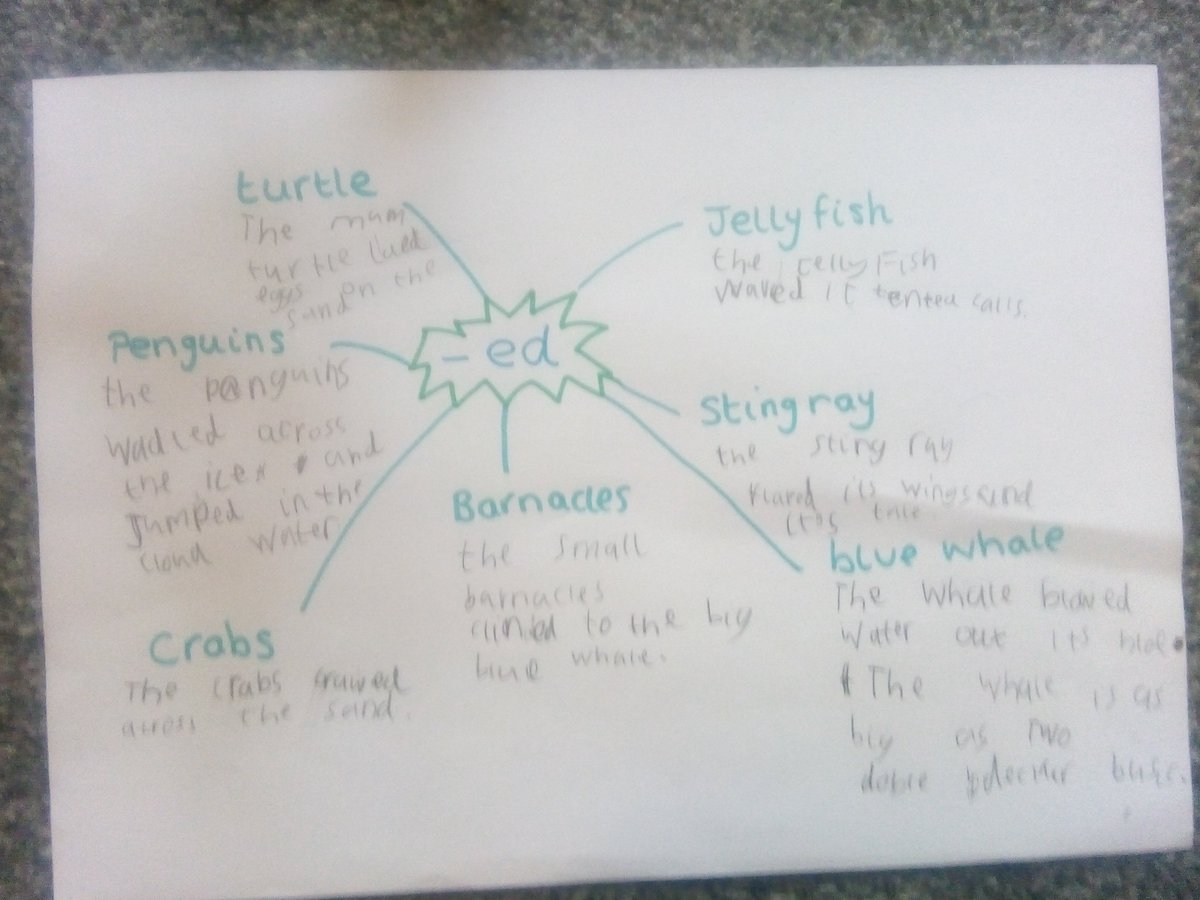 turtle
The mum
turtle laed
eggs on the
sand
Jelly fish
the jellyFish
waved it tentea calls.
Penguins
the penguins
wadled across
the ice and
Jumped in the
cloud water
- ed
Sting ray
the sting ray
its wings and
it's tale
Barnacles
the small
barnacles
to the big
blue whale.
blue whale
The whale blowed
water out its
The whale is as
big as Two
doble decker
Crabs
The crabs crawed
across the sand.